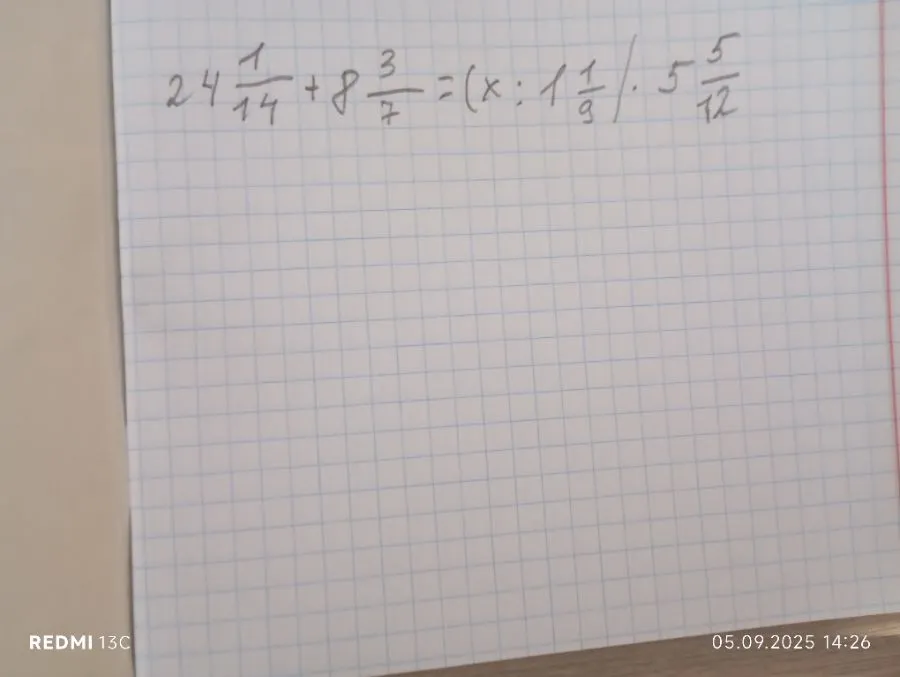 24 1/14 + 8 3/7 = (x : 1 1/9) · 5 5/12
REDMI 13C
05.09.2025 14:26